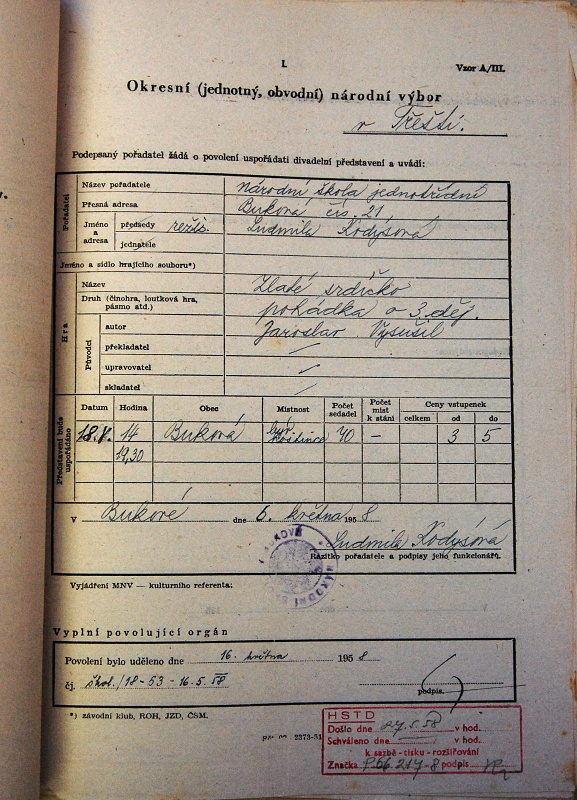 I.
Vzor A/III.
Okresní (jednotný, obvodní) národní výbor
v Třešti.
Podepsaný pořadatel žádá o povolení uspořádati divadelní představení a uvádí:
Pořadatel
Název pořadatele národní škola jednotřídní
Přesná adresa Buková čís. 21
Jméno a adresa předsedy režis. Ludmila Kodysová
jednatele
Jméno a sídlo hrajícího souboru*)
Hra
Název Zlaté srdíčko
Druh (činohra, loutková hra, pásmo atd.) pohádka o 3 děj.
Původci
autor Jaroslav Vysušil
překladatel
upravovatel
skladatel
Představení bude uspořádáno
Datum Hodina Obec Místnost Počet sedadel Počet míst k stání Ceny vstupenek
celkem od do
18.V. 14 Buková hostince 70 — 3 5
19,30
V Bukové dne 5. května 1958
Ludmila Kodysová
Razítko pořadatele a podpisy jeho funkcionářů.
Vyjádření MNV — kulturního referenta:
Vyplní povolující orgán
Povolení bylo uděleno dne 16. května 1958
čj. škol./18-53-16.5.58
podpis
*) závodní klub, ROH, JZD, ČSM.
2373-51
HSTD
Došlo dne 27.5.58 v hod.
Schváleno dne v hod.
k sazbě - tisku - rozšiřování
Značka P56 217-8 podpis